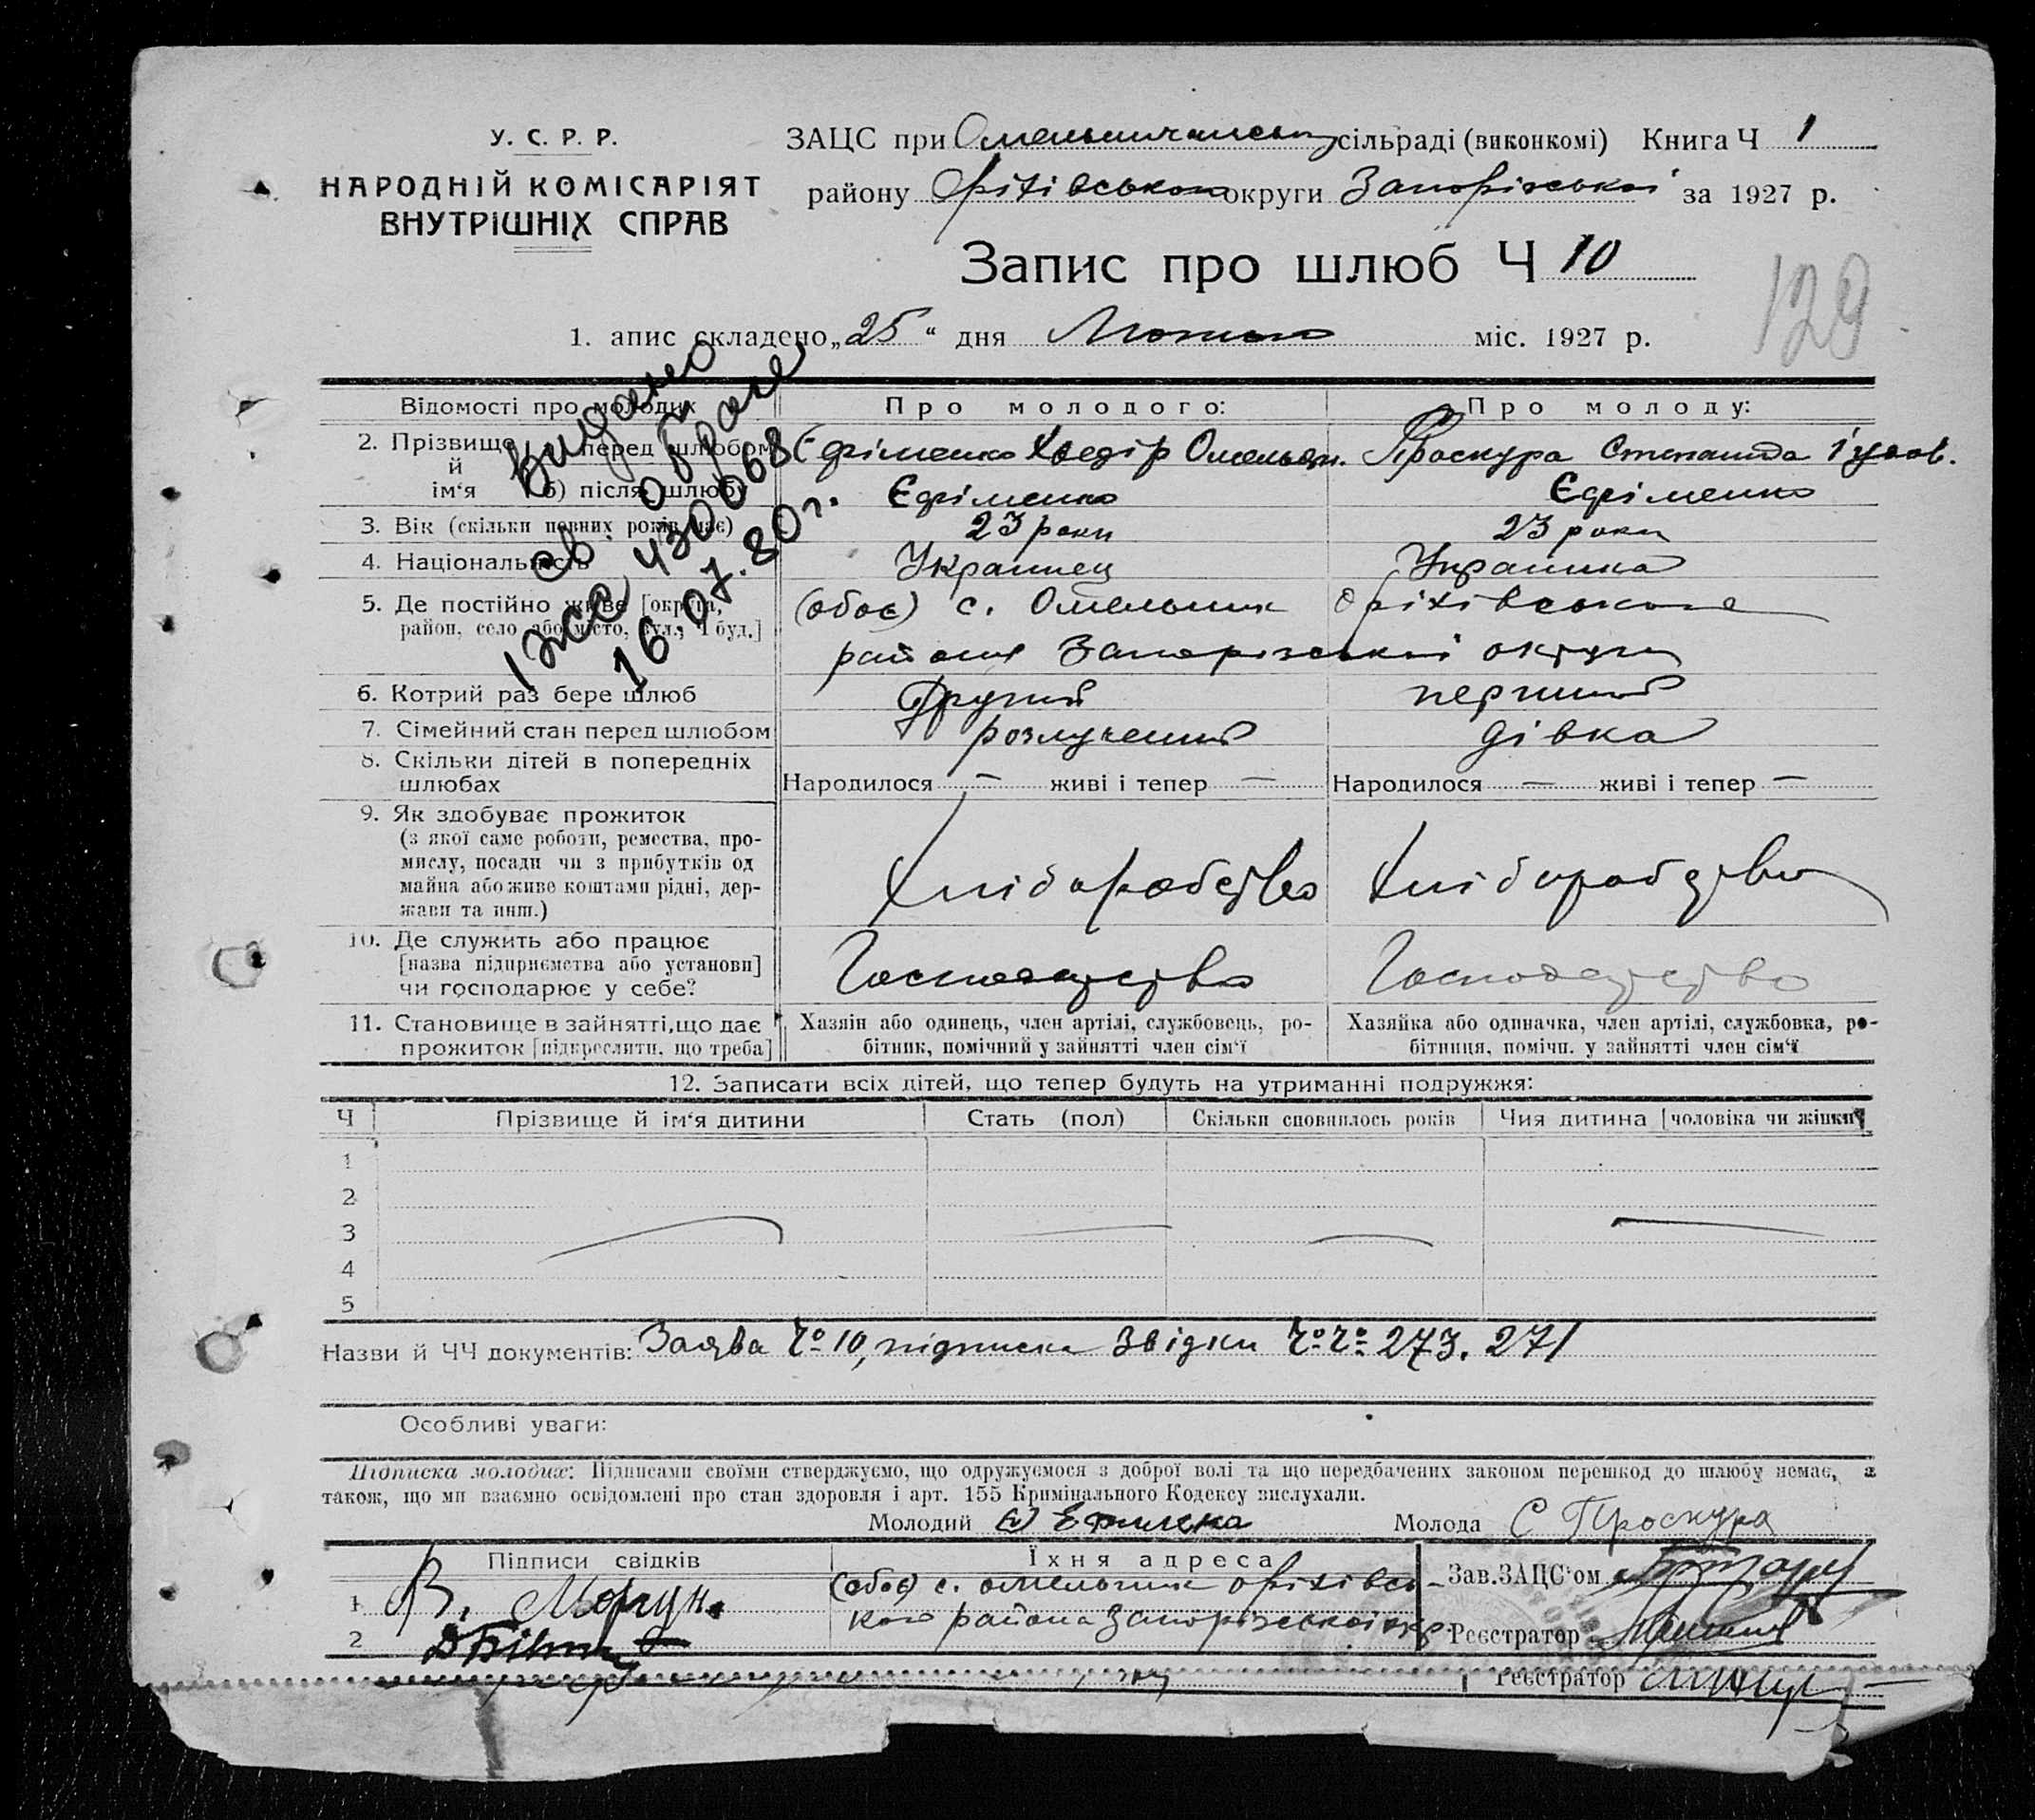 У. С. Р. Р.
НАРОДНІЙ КОМІСАРІЯТ
ВНУТРІШНІХ СПРАВ
ЗАЦС при сільраді (виконкомі) Книга Ч 1
району Оріхівського округи Запорізької за 1927 р.
Запис про шлюб Ч 10
129
1. апис складено „25" дня Лютого міс. 1927 р.
Видано
св. о браке
ІЖС 430668
16.07.80 г.
Відомості про молодих
Про молодого:
Про молоду:
2. Прізвище й ім'я
перед шлюбом
Єфіменко Хведір Омельян.
Проскура Степанида
б) після шлюбу
Єфіменко
Єфіменко
3. Вік (скільки повних років має)
23 роки
23 роки
4. Національність
Українец
Українка
5. Де постійно живе [округа,
район, село або місто, вул., Ч буд.]
(обоє) с. Омельник Оріхівського
района Запорізської округи
6. Котрий раз бере шлюб
Другий
перший
7. Сімейний стан перед шлюбом
розлучений
дівка
8. Скільки дітей в попередніх
шлюбах
Народилося — живі і тепер —
Народилося — живі і тепер —
9. Як здобуває прожиток
(з якої саме роботи, ремества, про-
мислу, посади чи з прибутків од
майна або живе коштами рідні, дер-
жави та инш.)
Хліборобство
Хліборобство
10. Де служить або працює
[назва підприємства або установи]
чи господарює у себе?
Господарство
Господарство
11. Становище в зайнятті, що дає
прожиток [підкреслити, що треба]
Хазяїн або одинець, член артілі, службовець, ро-
бітник, помічний у зайнятті член сім'ї
Хазяйка або одиначка, член артілі, службовка, ро-
бітниця, помічн. у зайнятті член сім'ї
12. Записати всіх дітей, що тепер будуть на утриманні подружжя:
Ч
Прізвище й ім'я дитини
Стать (пол)
Скільки сповнилось років
Чия дитина [чоловіка чи жінки]
1
2
3
4
5
Назви й ЧЧ документів: Заява Ч° 10, підписка звідки Ч°Ч° 273. 271
Особливі уваги:
Підписка молодих: Підписами своїми стверджуємо, що одружуємося з доброї волі та що передбачених законом перешкод до шлюбу немає, а
також, що ми взаємно освідомлені про стан здоровля і арт. 155 Кримінального Кодексу вислухали.
Молодий
Молода С Проскура
Підписи свідків
Їхня адреса
1 В. Моргун
2
(обоє) с. Омельник Оріхівсь-
кого района Запорізської окр.
Зав. ЗАЦС'ом
Реєстратор
Реєстратор